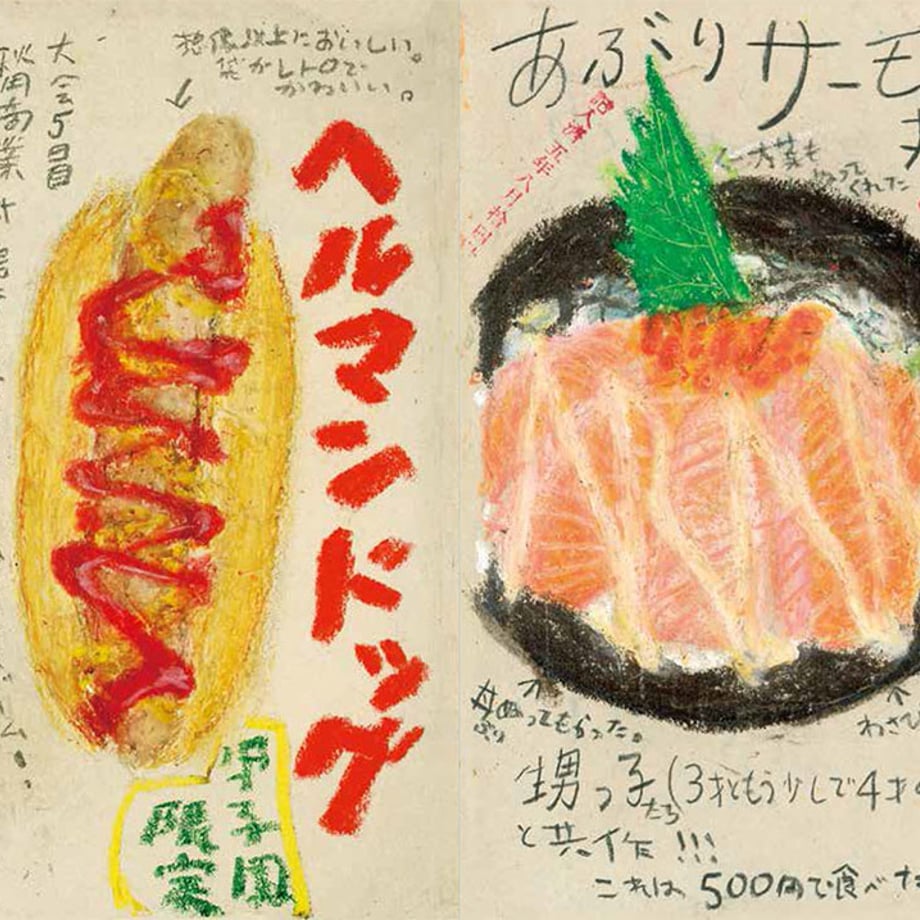 想像以上においしい。
袋がレトロで
かわいい。
大会5日目
秋田商業
ヘルマンドッグ
甲子園
限定
あぶりサーモ
五年八月拾
←大葉も
ぬって
くれた
ぬってもらった。
わさ
甥っ子たち(3才ともう少しで4才
と共作!!!
これは、500円で食べた